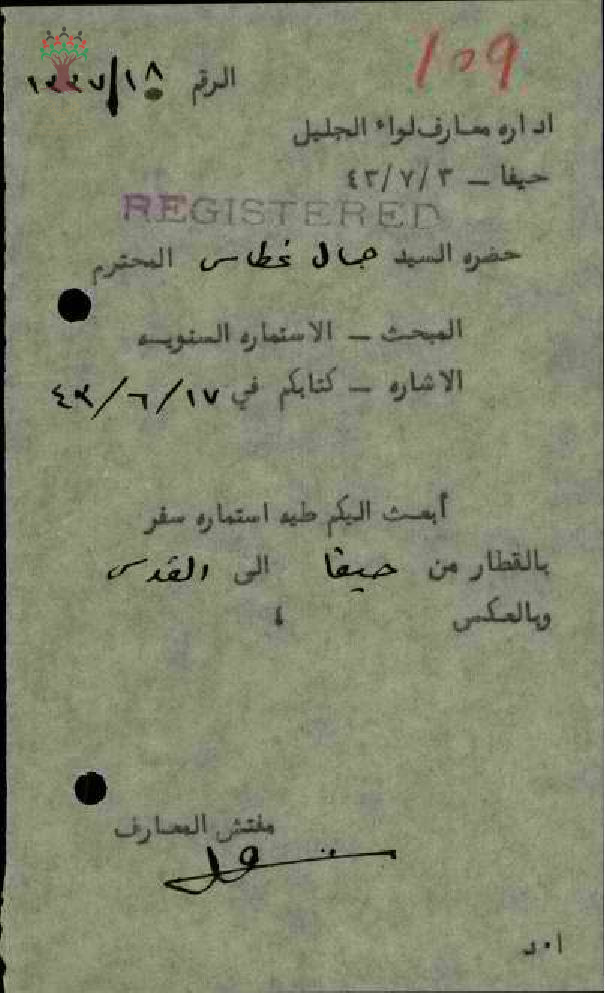 109
الرقم ١٨/١٢٢٧
اداره معارف لواء الجليل
حيفا – ٤٣/٧/٣
REGISTERED
حضره السيد جمال غطاس المحترم
المبحث – الاستماره السنويه
الاشاره – كتابكم في ٤٣/٦/١٧
أبعث اليكم طيه استماره سفر
بالقطار من حيفا الى القدس
وبالعكس ،
مفتش المعارف